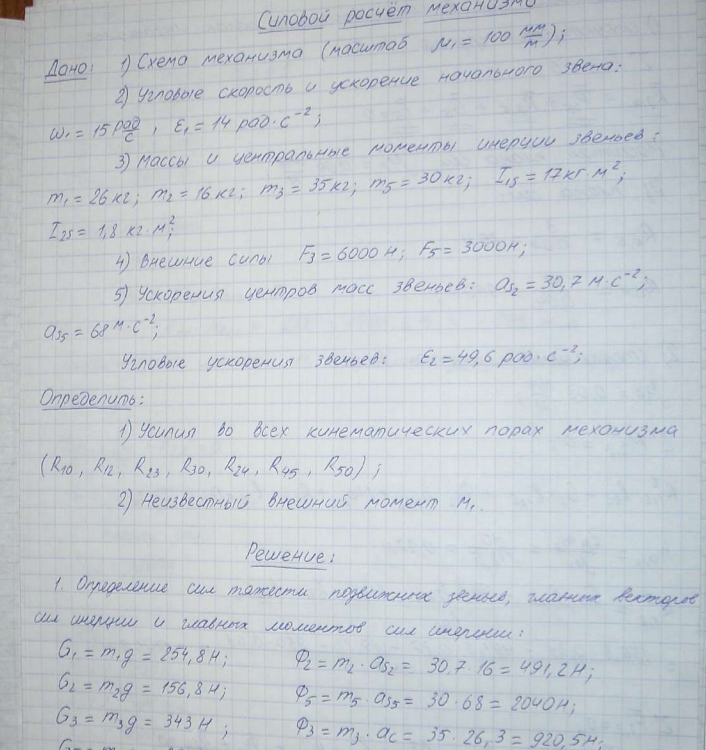 Силовой расчёт механизма
Дано: 1) Схема механизма (масштаб μ₁ = 100 мм/м);
2) Угловые скорость и ускорение начального звена:
ω₁ = 15 рад/с, ε₁ = 14 рад·с⁻²;
3) Массы и центральные моменты инерции звеньев:
m₁ = 26 кг; m₂ = 16 кг; m₃ = 35 кг; m₅ = 30 кг; I₁ₛ = 17 кг·м²;
I₂ₛ = 1,8 кг·м²;
4) Внешние силы F₃ = 6000 Н; F₅ = 3000 Н;
5) Ускорения центров масс звеньев: aₛ₂ = 30,7 м·с⁻²;
aₛ₅ = 68 м·с⁻²;
Угловые ускорения звеньев: ε₂ = 49,6 рад·с⁻²;
Определить:
1) Усилия во всех кинематических парах механизма
(R₁₀, R₁₂, R₂₃, R₃₀, R₂₄, R₄₅, R₅₀);
2) Неизвестный внешний момент M₁.
Решение:
1. Определение сил тяжести подвижных звеньев, главных векторов
сил инерции и главных моментов сил инерции:
G₁ = m₁g = 254,8 Н; Ф₂ = m₂·aₛ₂ = 30,7·16 = 491,2 Н;
G₂ = m₂g = 156,8 Н; Ф₅ = m₅·aₛ₅ = 30·68 = 2040 Н;
G₃ = m₃g = 343 Н; Ф₃ = m₃·a_c = 35·26,3 = 920,5 Н.